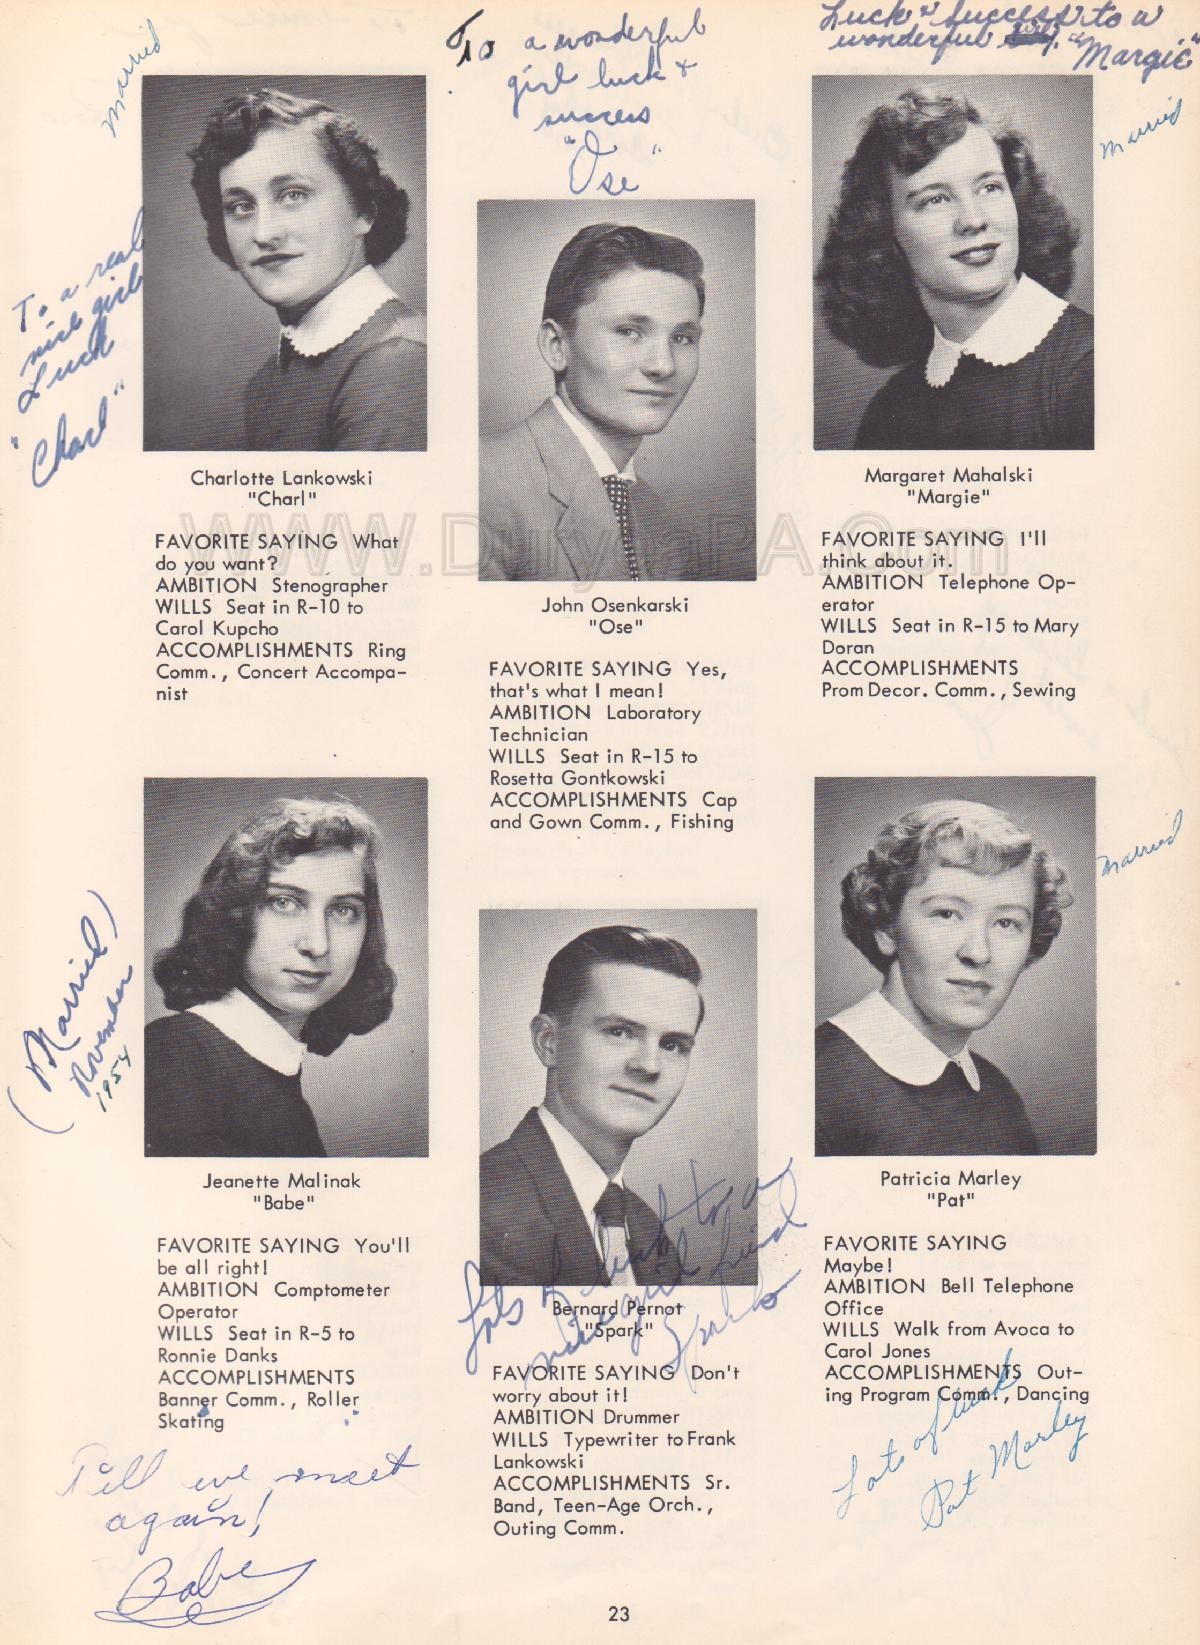 Married
To a wonderful
girl luck &
success
"Ose"
Luck & Success to a
wonderful girl. "Margie"
Married
To a real
nice girl
Luck
"Charl"
Charlotte Lankowski
"Charl"
FAVORITE SAYING What
do you want?
AMBITION Stenographer
WILLS Seat in R-10 to
Carol Kupcho
ACCOMPLISHMENTS Ring
Comm., Concert Accompa-
nist
WWW.DuryeaPA.Com
John Osenkarski
"Ose"
FAVORITE SAYING Yes,
that's what I mean!
AMBITION Laboratory
Technician
WILLS Seat in R-15 to
Rosetta Gontkowski
ACCOMPLISHMENTS Cap
and Gown Comm., Fishing
Margaret Mahalski
"Margie"
FAVORITE SAYING I'll
think about it.
AMBITION Telephone Op-
erator
WILLS Seat in R-15 to Mary
Doran
ACCOMPLISHMENTS
Prom Decor. Comm., Sewing
(Married)
November
1954
Jeanette Malinak
"Babe"
FAVORITE SAYING You'll
be all right!
AMBITION Comptometer
Operator
WILLS Seat in R-5 to
Ronnie Danks
ACCOMPLISHMENTS
Banner Comm., Roller
Skating
Till we meet
again!
Babe
Lots of luck to a
nice girl friend
Sparko
Bernard Pernot
"Spark"
FAVORITE SAYING Don't
worry about it!
AMBITION Drummer
WILLS Typewriter to Frank
Lankowski
ACCOMPLISHMENTS Sr.
Band, Teen-Age Orch.,
Outing Comm.
Married
Patricia Marley
"Pat"
FAVORITE SAYING
Maybe!
AMBITION Bell Telephone
Office
WILLS Walk from Avoca to
Carol Jones
ACCOMPLISHMENTS Out-
ing Program Comm., Dancing
Lots of luck
Pat Marley
23